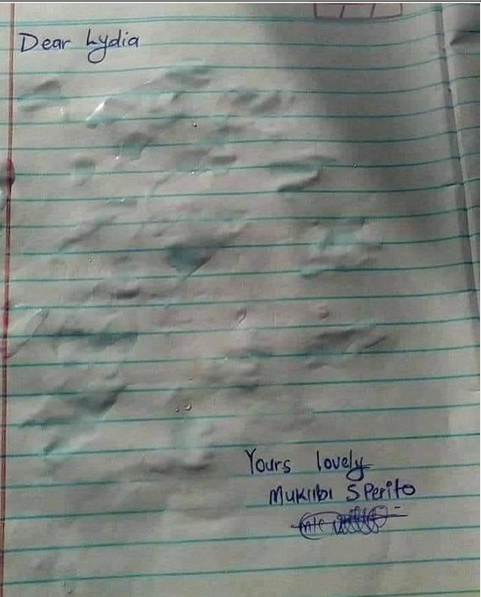 Dear Lydia
Yours lovely
Mukiibi SPerito